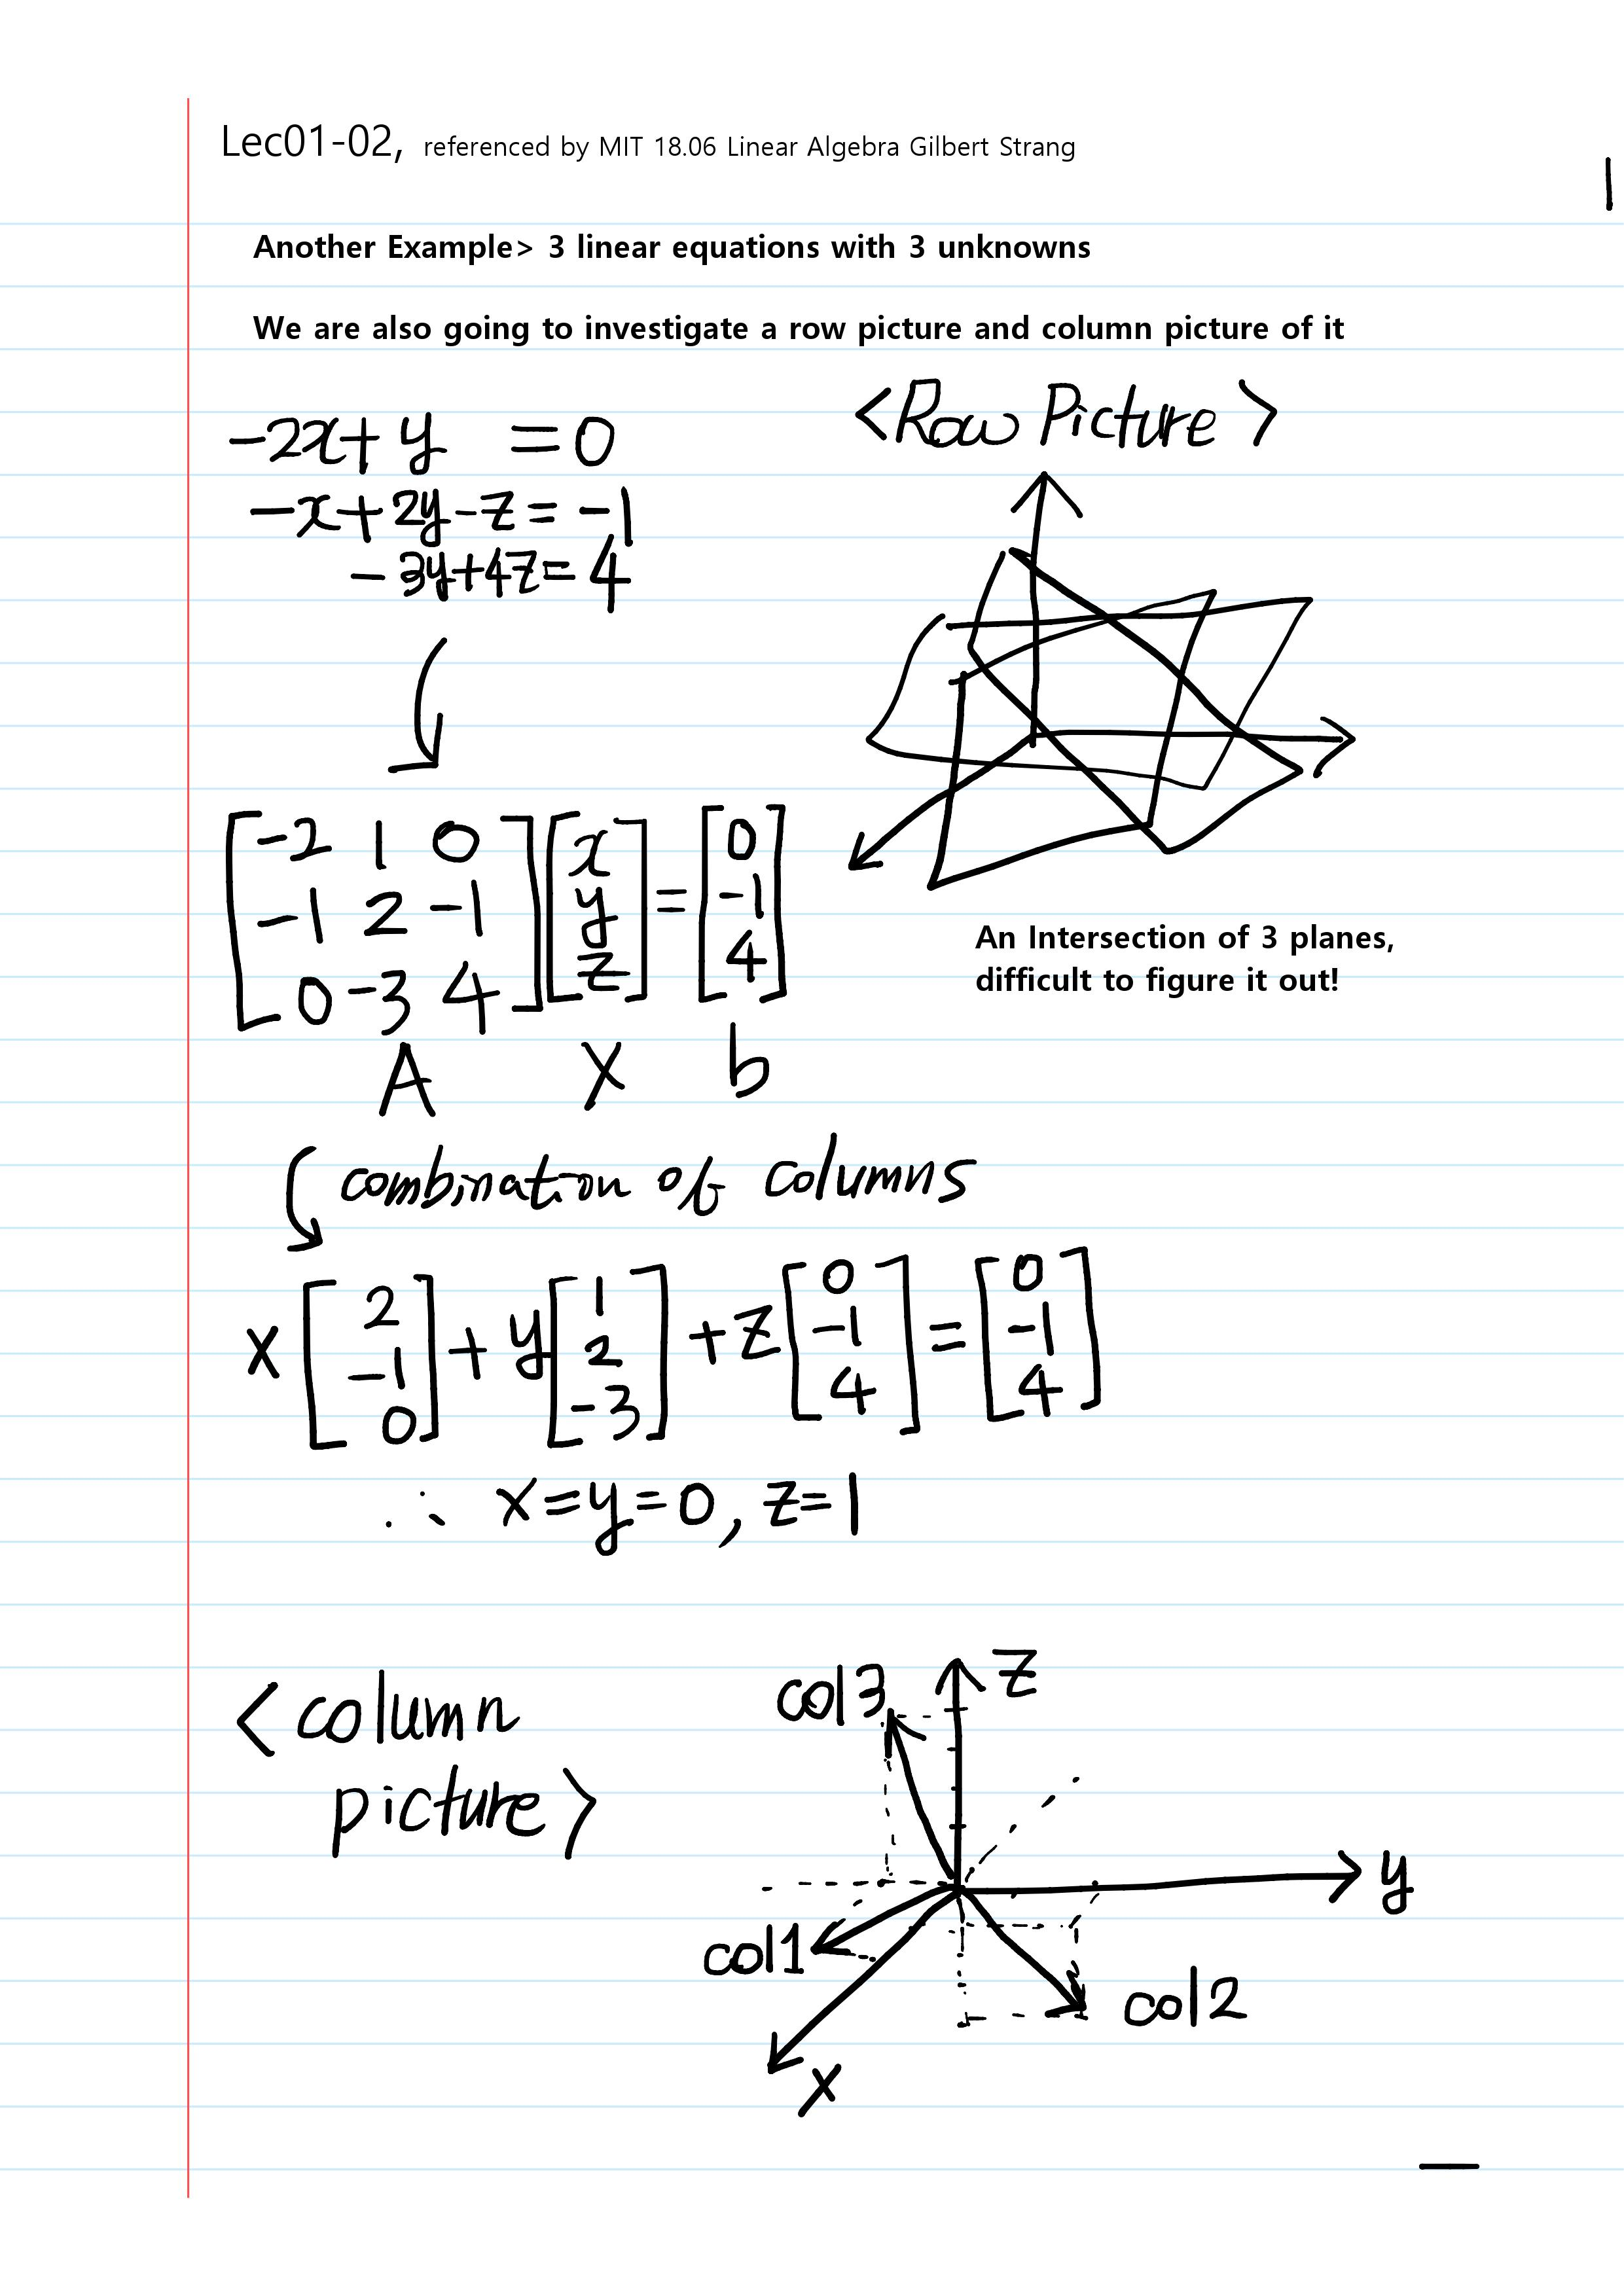 Lec01-02, referenced by MIT 18.06 Linear Algebra Gilbert Strang
Another Example> 3 linear equations with 3 unknowns
We are also going to investigate a row picture and column picture of it
-2x+y =0
-x+2y-z=-1
-3y+4z=4
<Row Picture>
An Intersection of 3 planes,
difficult to figure it out!
[-2 1 0] [x] = [0]
[-1 2 -1] [y] [-1]
[0 -3 4] [z] [4]
A X b
combination of columns
x[2 -1 0]+y[1 2 -3]+z[0 -1 4]=[0 -1 4]
∴ x=y=0, z=1
<column
picture>
col3 z
y
col1
col2
x